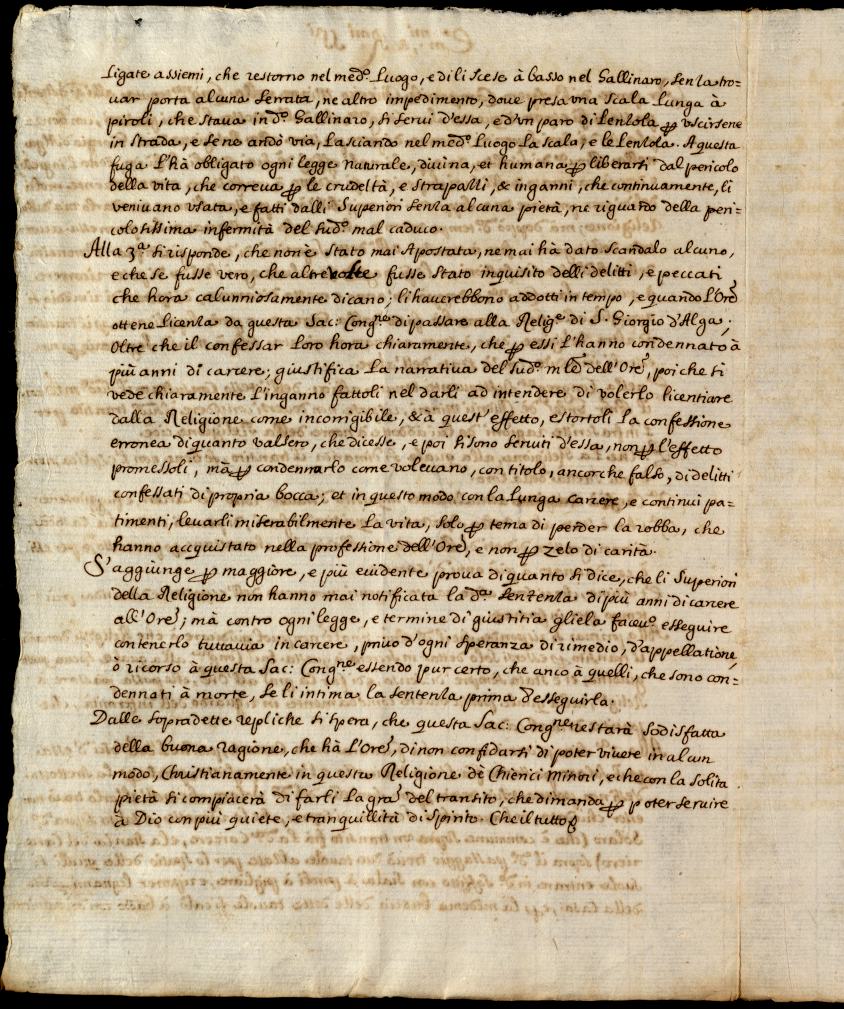 ligate assiemi, che restorno nel med.º luogo, e di li scese à basso nel Gallinaro, senza tro=
uar porta alcuna serrata, ne altro impedimento, doue presa vna scala lunga à
piroli, che staua in d.º Gallinaro, si serui d'essa, e d'vn paro di lenzola ꝑ vscirsene
in strada, e se ne andò via, lasciando nel med.º luogo la scala, e le lenzola. A questa
fuga l'hà obligato ogni legge naturale, diuina, et humana ꝑ liberarsi dal pericolo
della vita, che correua ꝑ le crudeltà, e strapazzi, & inganni, che continuamente, li
veniuano vsata, e fatti dalli Superiori senza alcuna pietà, ne riguardo della peri=
colosissima infermità del sud.º mal caduco.
Alla 3.ª si risponde, che non è stato mai Apostata, ne mai hà dato scandalo alcuno,
e che se fusse vero, che altre volte fusse stato inquisito delli delitti, e peccati
che hora calunniosamente dicano; li hauerebbono addotti in tempo, e quando l'Ore
ottene licenza da questa Sac: Cong.ne di passare alla Relig.e di S. Giorgio d'Alga;
Oltre che il confessar loro hora chiaramente, che ꝑ essi l'hanno condennato à
più anni di carcere; giustifica la narratiua del sud.º m.le dell'Ore, poi che si
vede chiaramente l'inganno fattoli nel darli ad intendere di volerlo licentiare
dalla Religione come incorrigibile, & à quest' effetto, estortoli la confessione
erronea di quanto valsero, che dicesse, e poi si sono seruiti d'essa, non ꝑ l'effetto
promessoli, mà ꝑ condennarlo come voleuano, con titolo, ancorche falso, di delitti
confessati di propria bocca; et in questo modo con la lunga carcere, e continui pa=
timenti, leuarli miserabilmente la vita, solo ꝑ tema di perder la robba, che
hanno acquistato nella professione dell'Ore, e non ꝑ zelo di carità.
S'aggiunge ꝑ maggiore, e più euidente proua di quanto si dice, che li Superiori
della Religione non hanno mai notificata la d.ª sentenza di più anni di carcere
all'Ore; mà contro ogni legge, e termine di giustitia gliela faceu.º esseguire
contenerlo tuttauia in carcere, priuo d'ogni speranza di rimedio, d'appellatione,
ò ricorso à questa Sac: Cong.ne essendo pur certo, che anco à quelli, che sono con=
dennati à morte, se li intima la sentenza prima d'esseguirla.
Dalle sopradette repliche si spera, che questa Sac: Cong.ne restarà sodisfatta
della buona ragione, che hà l'Ore, di non confidarsi di poter viuere in alcun
modo, Christianamente in questa Religione de Chierici Minori, e che con la solita
pietà si compiacerà di farli la gra del transito, che dimanda ꝑ poter seruire
à Dio con più quiete, e tranquillità di spirito. Che il tutto